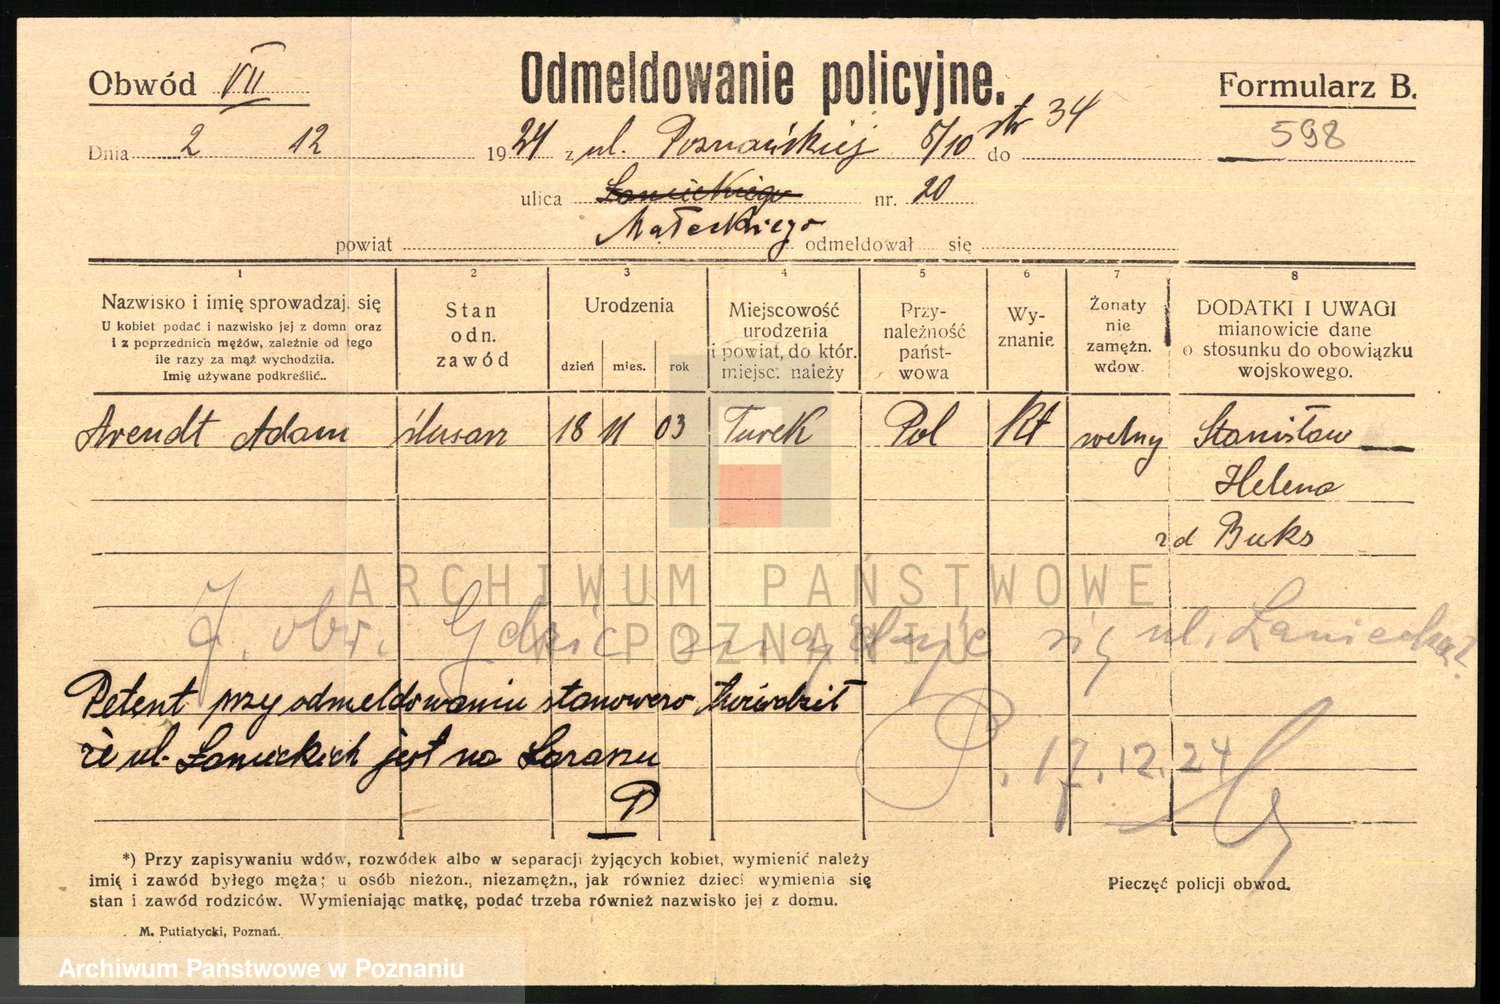 Obwód VII
Odmeldowanie policyjne.
Formularz B.
598
Dnia 2 12 1924 z ul. Poznańskiej 5/10 str 34 do
ulica Łanieckiego nr. 20
Małeckiego
powiat odmeldował się
1 2 3 4 5 6 7 8
Nazwisko i imię sprowadzaj. się
U kobiet podać i nazwisko jej z domu oraz
i z poprzednich mężów, zależnie od tego
ile razy za mąż wychodziła.
Imię używane podkreślić..
Stan
odn.
zawód
Urodzenia
dzień mies. rok
Miejscowość
urodzenia
i powiat, do któr.
miejsc. należy
Przy-
należność
państ-
wowa
Wy-
znanie
Żonaty
nie
zamężn.
wdow.
DODATKI I UWAGI
mianowicie dane
o stosunku do obowiązku
wojskowego.
Arendt Adam ślusarz 18 11 03 Turek Pol Kt wolny Stanisław
Helena
zd Buks
7. obw. Gdzie znajduje się ul. Łaniecka?
P. 17.12.24
Petent przy odmeldowaniu stanowczo twierdził
że ul. Łanieckich jest na Łazarzu
P
*) Przy zapisywaniu wdów, rozwódek albo w separacji żyjących kobiet, wymienić należy
imię i zawód byłego męża; u osób nieżon., niezamężn., jak również dzieci wymienia się
stan i zawód rodziców. Wymieniając matkę, podać trzeba również nazwisko jej z domu.
Pieczęć policji obwod.
M. Putiatycki, Poznań.
ARCHIWUM PAŃSTWOWE
W POZNANIU
Archiwum Państwowe w Poznaniu